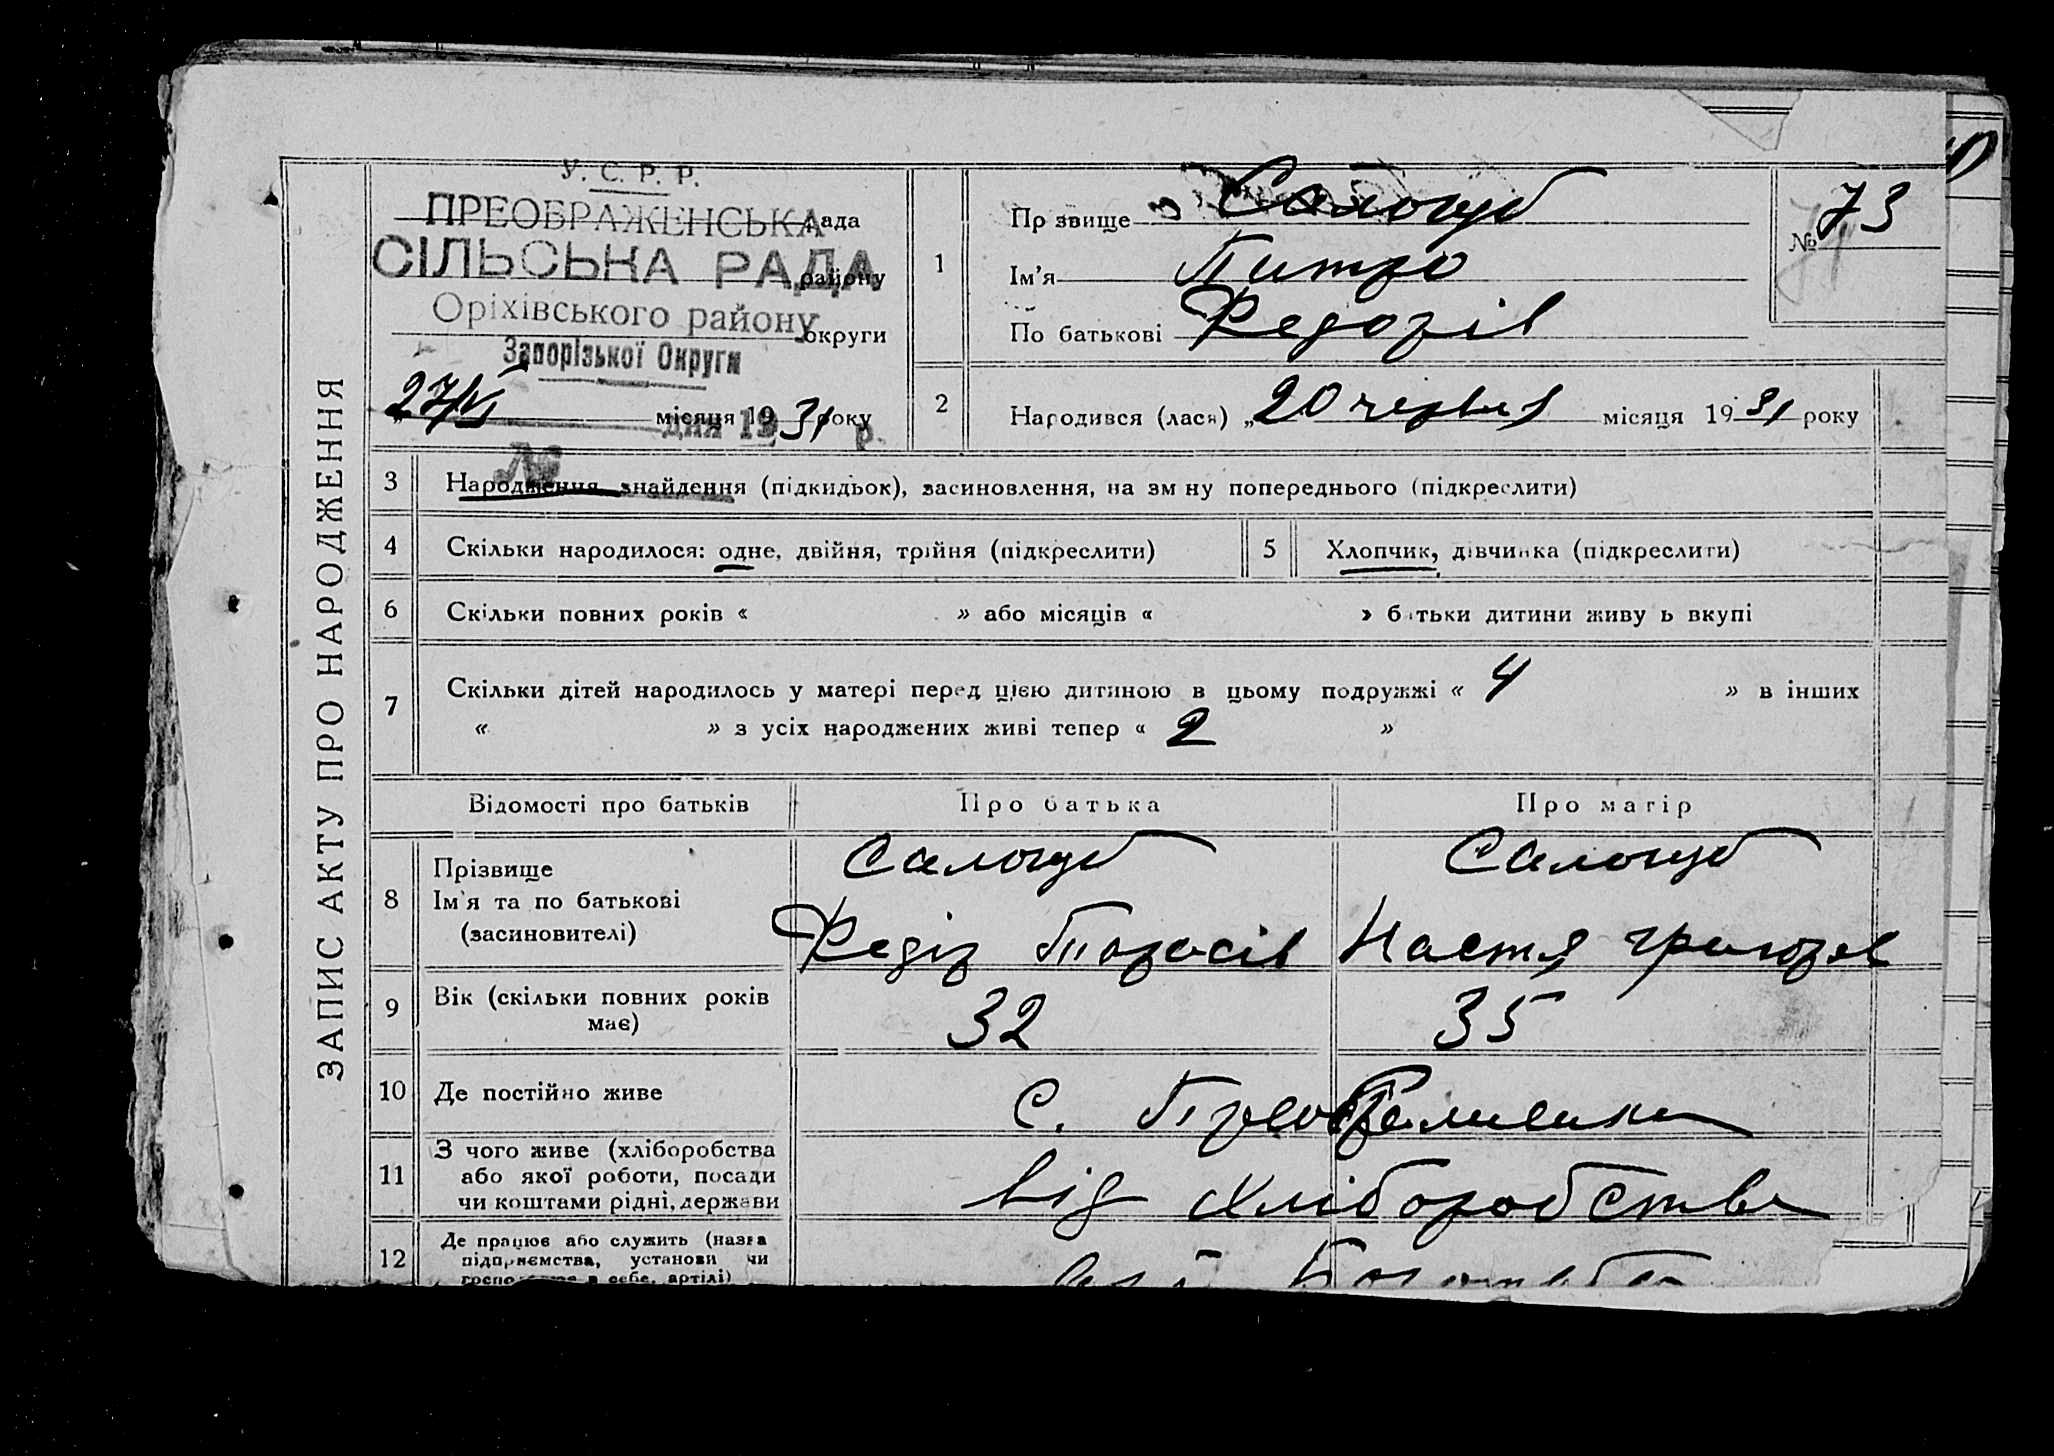 ЗАПИС АКТУ ПРО НАРОДЖЕННЯ
У. С. Р. Р.
ПРЕОБРАЖЕНСЬКА рада
СІЛЬСЬКА РАДА району
Оріхівського району округи
Запорізької Округи
„27/VI місяця 1931 року
дня 19 р.
№
1 Прзвище Салогуб
Ім'я Питро
По батькові Федорів
№ 73
2 Народився (лася) „20 червня місяця 1931 року
3 Народження, знайдення (підкидьок), засиновлення, на змну попереднього (підкреслити)
4 Скільки народилося: одне, двійня, трійня (підкреслити) 5 Хлопчик, дівчинка (підкреслити)
6 Скільки повних років « » або місяців « » бтьки дитини живу ь вкупі
7 Скільки дітей народилось у матері перед цією дитиною в цьому подружжі « 4 » в інших
« » з усіх народжених живі тепер « 2 »
Відомості про батьків Про батька Про матір
8 Прізвище Салогуб Салогуб
Ім'я та по батькові
(засиновителі) Федір Тарасів Настя григорів
9 Вік (скільки повних років має) 32 35
10 Де постійно живе с. Преображенка
11 З чого живе (хліборобства
або якої роботи, посади
чи коштами рідні, держави від хліборобства
12 Де працює або служить (назва
підприємства, установи чи
в себе, артілі)